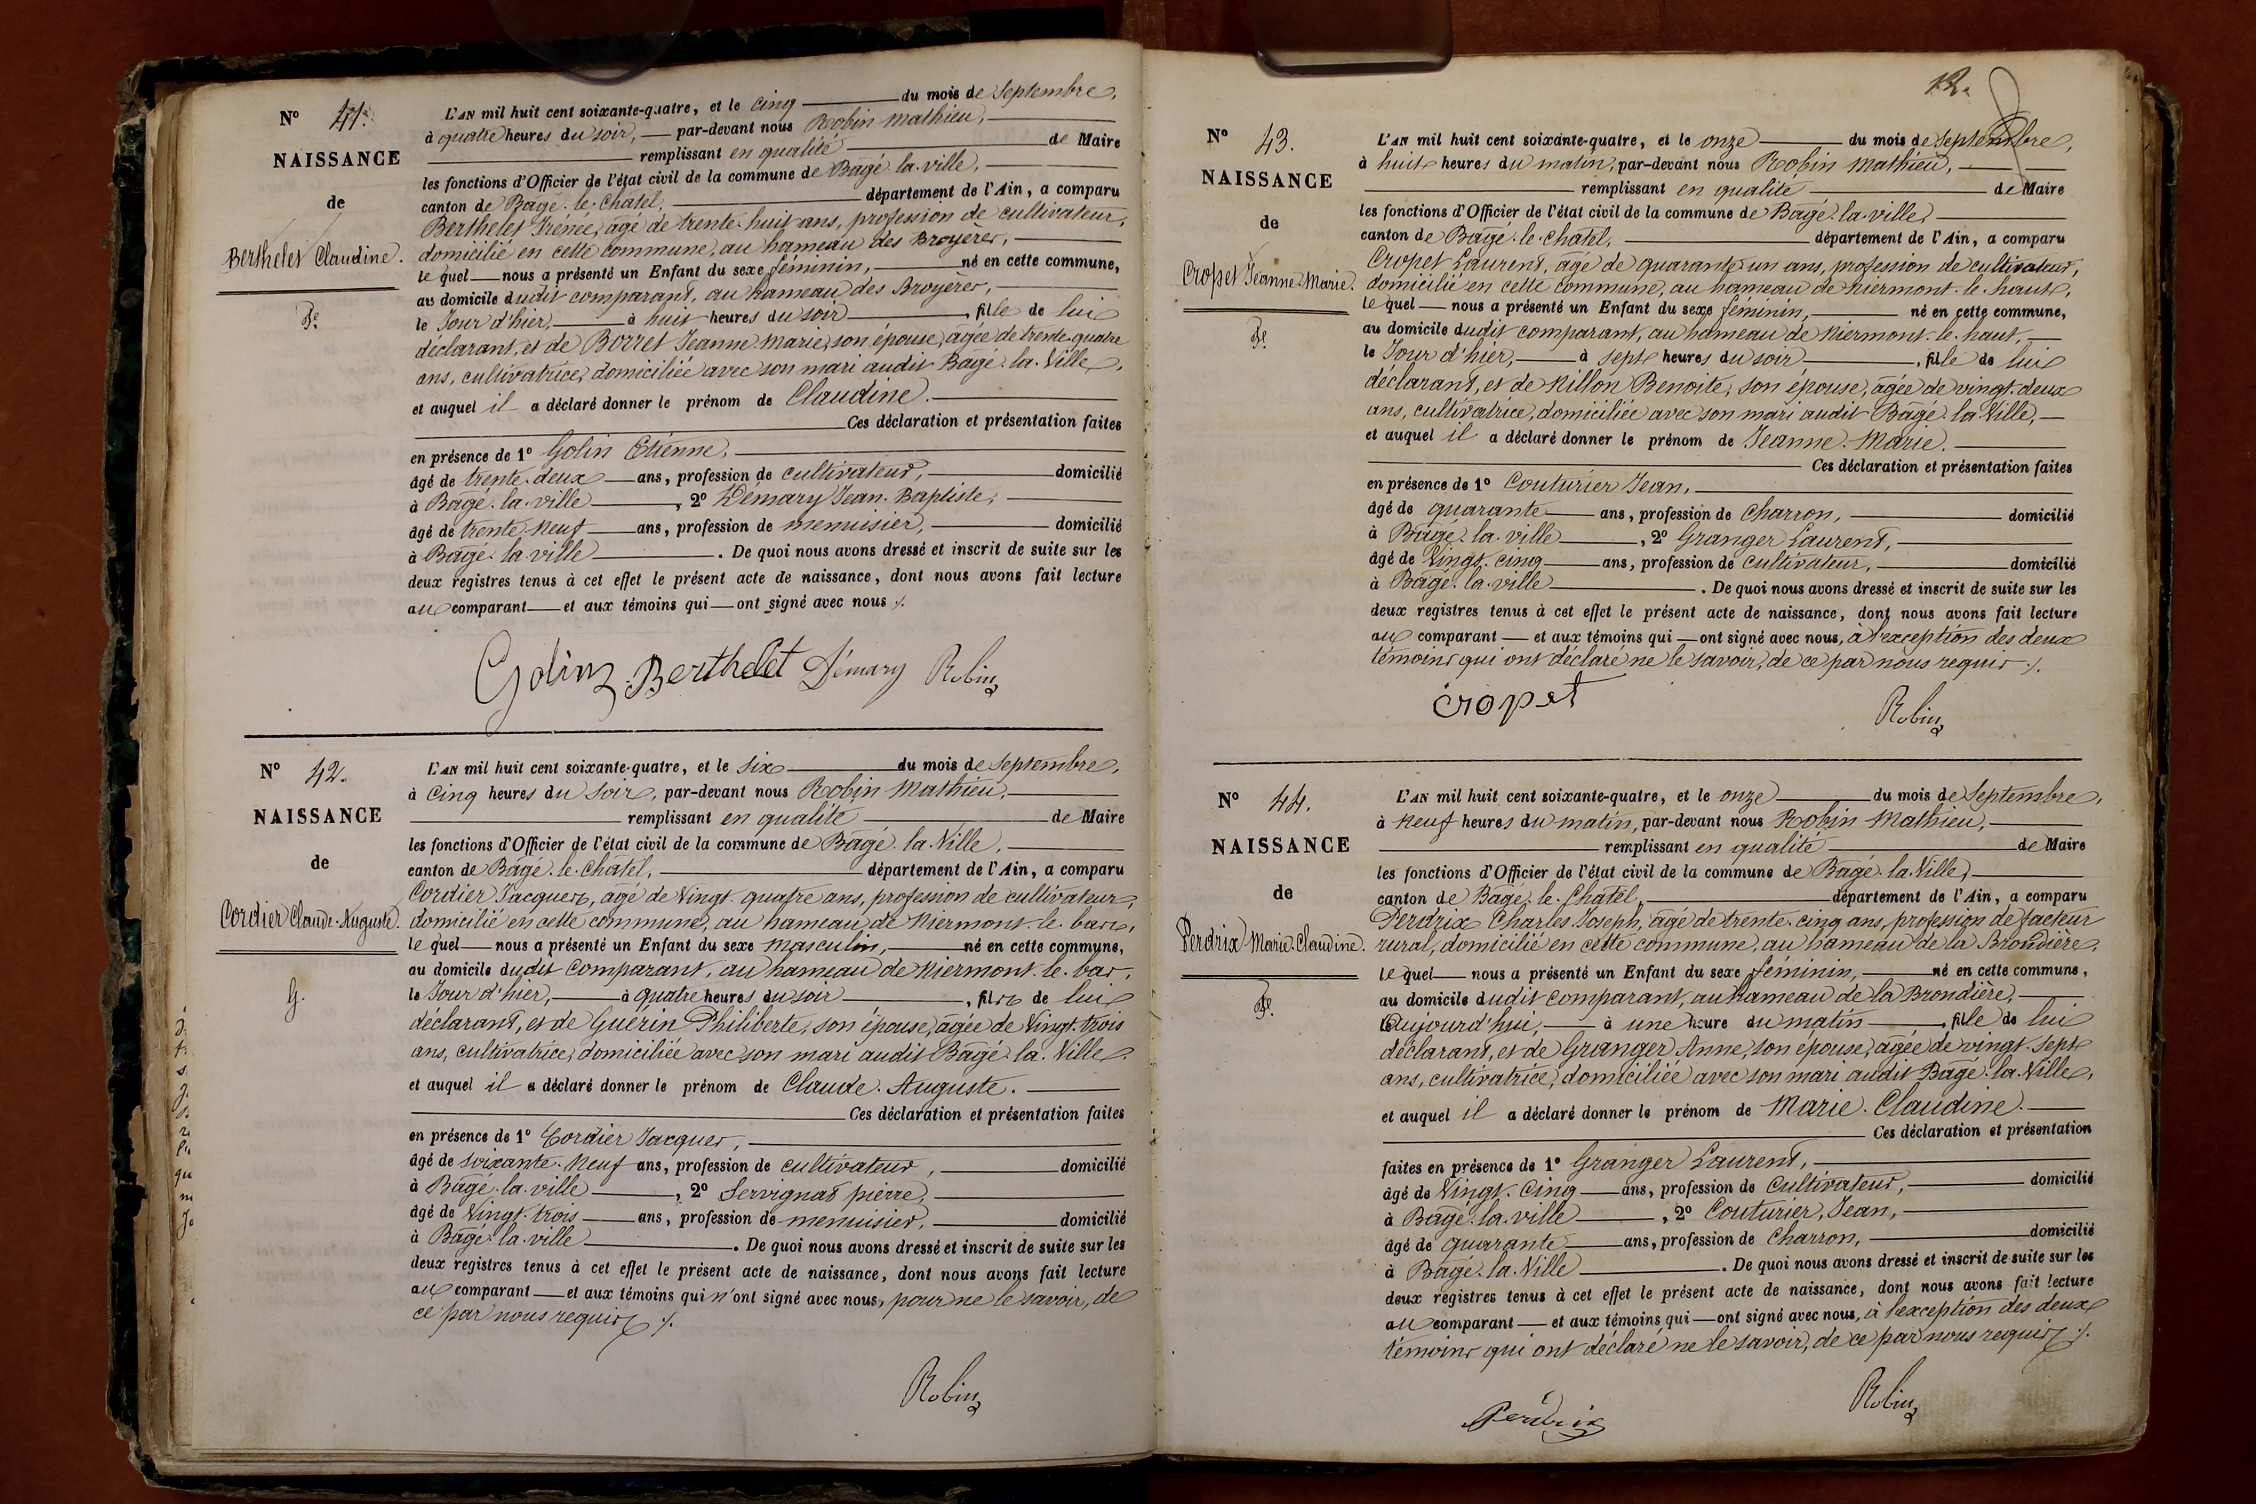 N° 41.
NAISSANCE
de
Berthelet Claudine.
Fe
L'AN mil huit cent soixante-quatre, et le cinq du mois de Septembre,
à quatre heures du soir, par-devant nous Robin Mathieu,
remplissant en qualité de Maire
les fonctions d'Officier de l'état civil de la commune de Bagé-la-ville,
canton de Bagé-le-Châtel, département de l'Ain, a comparu
Berthelet Irénée, âgé de trente-huit ans, profession de cultivateur,
domicilié en cette commune, au hameau des Broyères,
le quel nous a présenté un Enfant du sexe féminin, né en cette commune,
au domicile dudit comparant, au hameau des Broyères,
le Jour d'hier, à huit heures du soir, fille de lui
déclarant, et de Borret Jeanne Marie, son épouse, âgée de trente-quatre
ans, cultivatrice, domiciliée avec son mari audit Bagé-la-Ville,
et auquel il a déclaré donner le prénom de Claudine.
Ces déclaration et présentation faites
en présence de 1° Golin Etienne,
âgé de trente-deux ans, profession de cultivateur, domicilié
à Bagé-la-ville, 2° Démary Jean-Baptiste,
âgé de trente-neuf ans, profession de menuisier, domicilié
à Bagé-la-ville. De quoi nous avons dressé et inscrit de suite sur les
deux registres tenus à cet effet le présent acte de naissance, dont nous avons fait lecture
au comparant et aux témoins qui ont signé avec nous ./.
Golin Berthelet Démary Robin
N° 42.
NAISSANCE
de
Cordier Claude-Auguste.
G.
L'AN mil huit cent soixante-quatre, et le six du mois de Septembre,
à cinq heures du soir, par-devant nous Robin Mathieu,
remplissant en qualité de Maire
les fonctions d'Officier de l'état civil de la commune de Bagé-la-Ville,
canton de Bagé-le-Châtel, département de l'Ain, a comparu
Cordier Jacques, âgé de Vingt-quatre ans, profession de cultivateur,
domicilié en cette commune, au hameau de Niermont-le-bas,
le quel nous a présenté un Enfant du sexe masculin, né en cette commune,
au domicile dudit comparant, au hameau de Niermont-le-bas,
le Jour d'hier, à quatre heures du soir, fils de lui
déclarant, et de Guérin Philiberte, son épouse, âgée de Vingt-trois
ans, cultivatrice, domiciliée avec son mari audit Bagé-la-Ville.
et auquel il a déclaré donner le prénom de Claude-Auguste.
Ces déclaration et présentation faites
en présence de 1° Cordier Jacques,
âgé de soixante-neuf ans, profession de cultivateur, domicilié
à Bagé-la-ville, 2° Servignat pierre,
âgé de Vingt-trois ans, profession de menuisier, domicilié
à Bagé-la-ville. De quoi nous avons dressé et inscrit de suite sur les
deux registres tenus à cet effet le présent acte de naissance, dont nous avons fait lecture
au comparant et aux témoins qui n'ont signé avec nous, pour ne le savoir, de
ce par nous requis ./.
Robin
12.
N° 43.
NAISSANCE
de
Cropet Jeanne-Marie.
Fe
L'AN mil huit cent soixante-quatre, et le onze du mois de Septembre,
à huit heures du matin, par-devant nous Robin Mathieu,
remplissant en qualité de Maire
les fonctions d'Officier de l'état civil de la commune de Bagé-la-ville,
canton de Bagé-le-Châtel, département de l'Ain, a comparu
Cropet Laurent, âgé de quarante-un ans, profession de cultivateur,
domicilié en cette commune, au hameau de Niermont-le-haut,
le quel nous a présenté un Enfant du sexe féminin, né en cette commune,
au domicile dudit comparant, au hameau de Niermont-le-haut,
le Jour d'hier, à sept heures du soir, fille de lui
déclarant, et de Nillon Benoite, son épouse, âgée de vingt-deux
ans, cultivatrice, domiciliée avec son mari audit Bagé-la-Ville,
et auquel il a déclaré donner le prénom de Jeanne-Marie.
Ces déclaration et présentation faites
en présence de 1° Couturier Jean,
âgé de quarante ans, profession de Charron, domicilié
à Bagé-la-ville, 2° Granger Laurent,
âgé de Vingt-cinq ans, profession de cultivateur, domicilié
à Bagé-la-ville. De quoi nous avons dressé et inscrit de suite sur les
deux registres tenus à cet effet le présent acte de naissance, dont nous avons fait lecture
au comparant et aux témoins qui ont signé avec nous, à l'exception des deux
témoins qui ont déclaré ne le savoir, de ce par nous requis ./.
cropet Robin
N° 44.
NAISSANCE
de
Perdrix Marie-Claudine.
Fe
L'AN mil huit cent soixante-quatre, et le onze du mois de Septembre,
à neuf heures du matin, par-devant nous Robin Mathieu,
remplissant en qualité de Maire
les fonctions d'Officier de l'état civil de la commune de Bagé-la-Ville,
canton de Bagé-le-Châtel, département de l'Ain, a comparu
Perdrix Charles-Joseph, âgé de trente-cinq ans, profession de facteur
rural, domicilié en cette commune, au hameau de la Brondière,
le quel nous a présenté un Enfant du sexe féminin, né en cette commune,
au domicile dudit comparant, au hameau de la Brondière,
aujourd'hui, à une heure du matin, fille de lui
déclarant, et de Granger Anne, son épouse, âgée de vingt-sept
ans, cultivatrice, domiciliée avec son mari audit Bagé-la-Ville,
et auquel il a déclaré donner le prénom de Marie-Claudine.
Ces déclaration et présentation
faites en présence de 1° Granger Laurent,
âgé de Vingt-Cinq ans, profession de cultivateur, domicilié
à Bagé-la-ville, 2° Couturier, Jean,
âgé de quarante ans, profession de Charron, domicilié
à Bagé-la-Ville. De quoi nous avons dressé et inscrit de suite sur les
deux registres tenus à cet effet le présent acte de naissance, dont nous avons fait lecture
au comparant et aux témoins qui ont signé avec nous, à l'exception des deux
témoins qui ont déclaré ne le savoir, de ce par nous requis ./.
Perdrix Robin